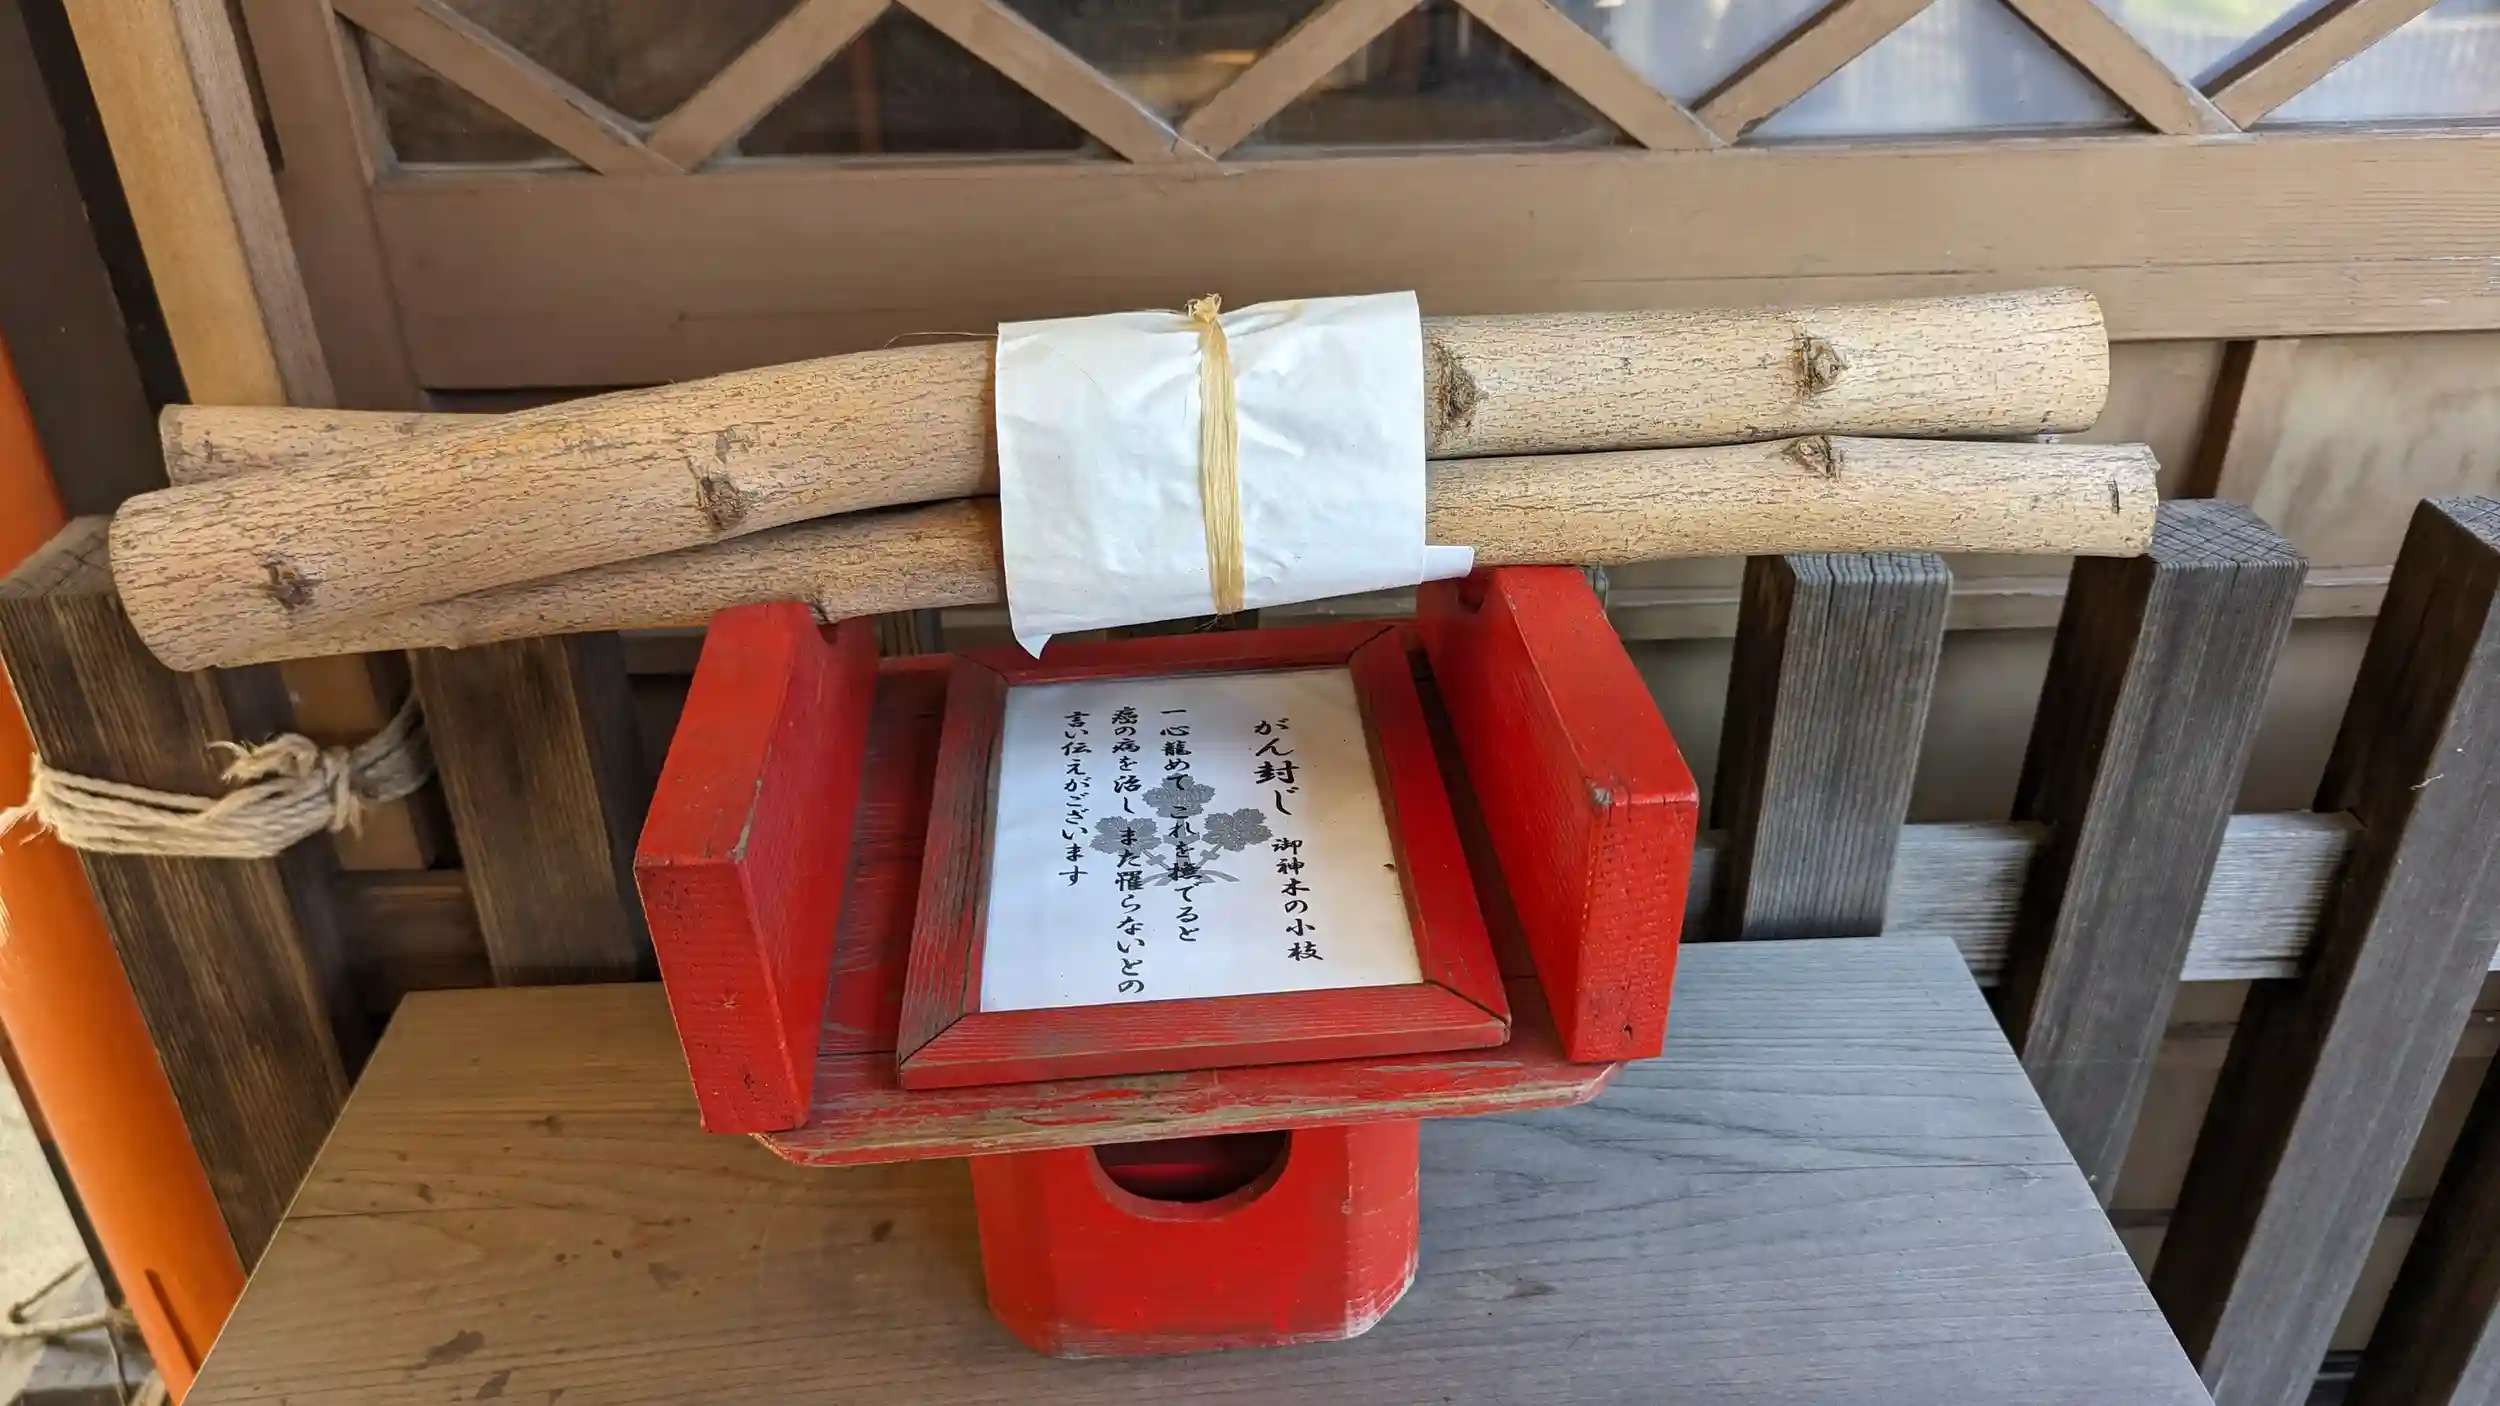 がん封じ 御神木の小枝
一心籠めてこれを撫でると
癌の病を治しまた罹らないとの
言い伝えがございます